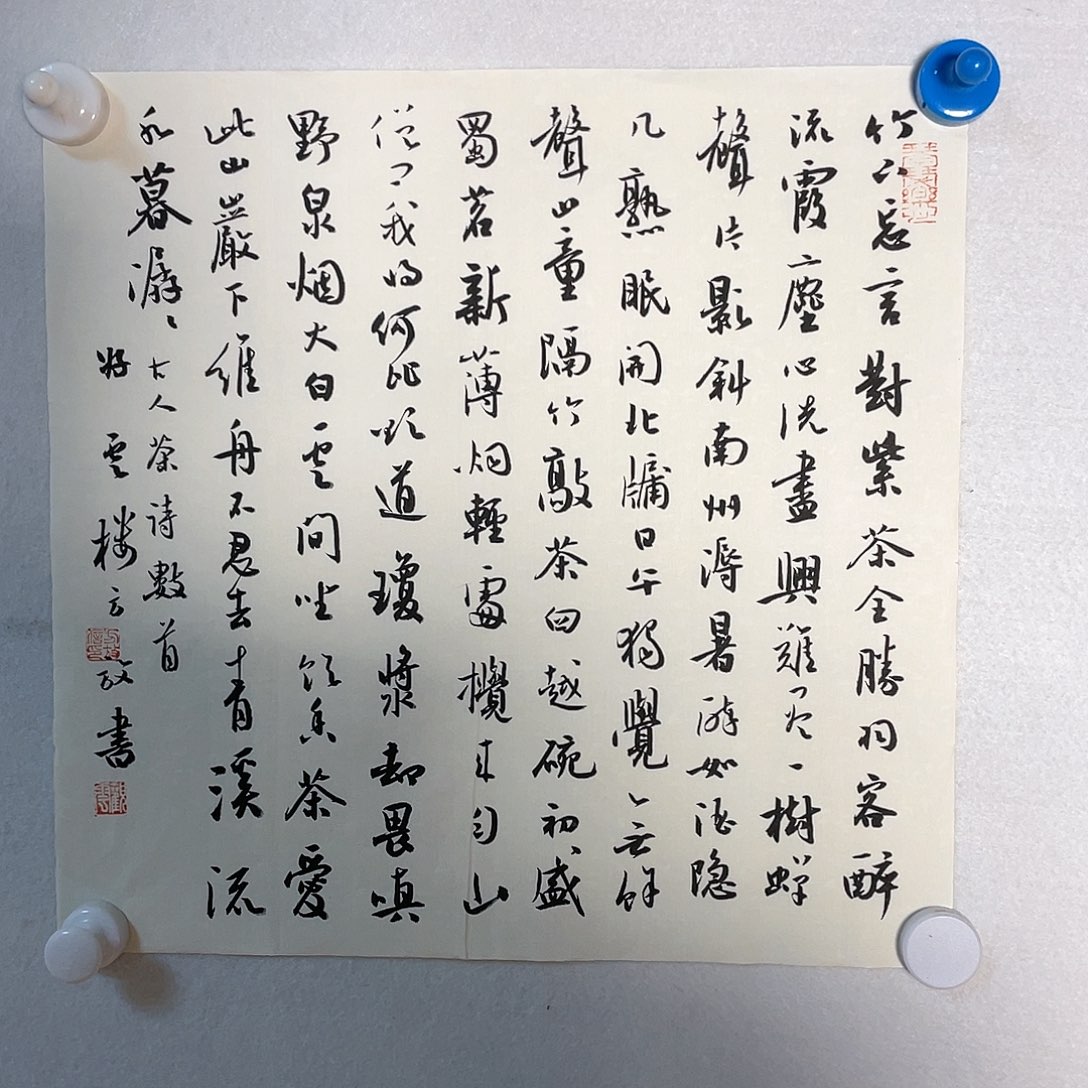 竹下忘言對紫茶全勝羽客醉
流霞塵心洗盡興難盡一樹蟬
聲片影斜南州溽暑醉如酒隐
几熟眠開北牖日午獨覺無餘
聲山童隔竹敲茶臼越碗初盛
蜀茗新薄烟輕處攪来勻山
僧問我将何比欲道瓊漿却畏嗔
野泉烟火白雲間坐飲香茶愛
此山巖下維舟不忍去青溪流
水暮潺〻古人茶诗數首
好雲楼方政書